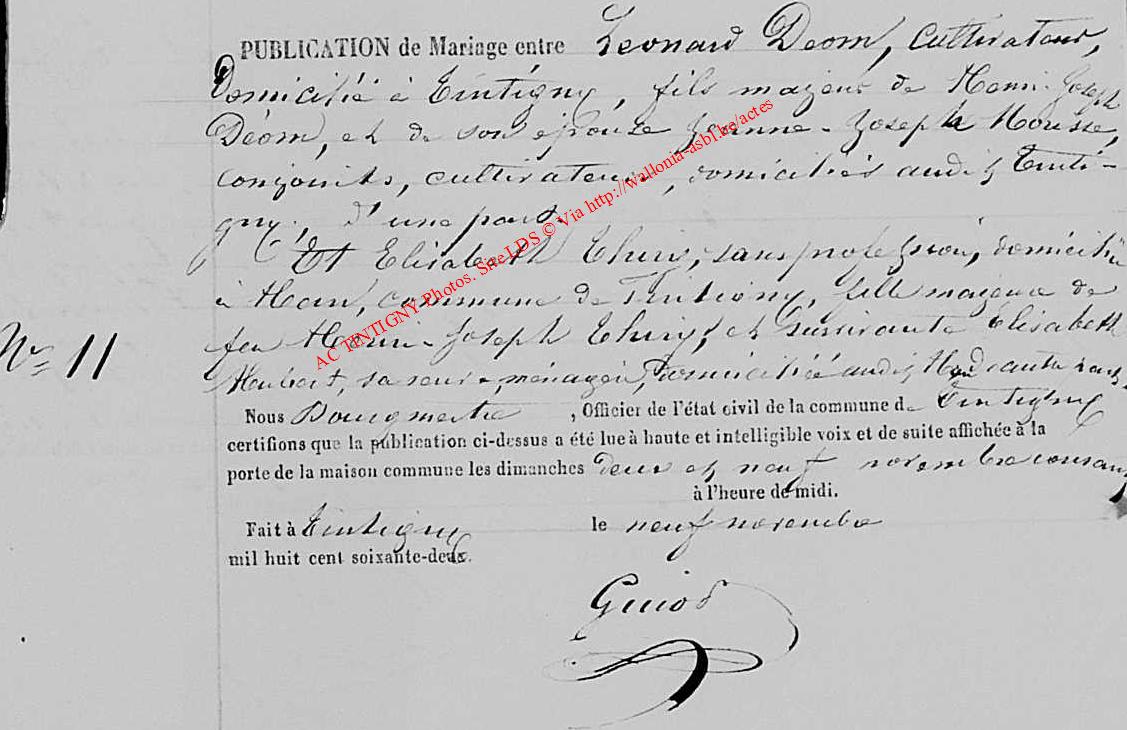 PUBLICATION de Mariage entre Leonard Deom, Cultivateur,
Domicilié à Tintigny, fils majeur de Henri-Joseph
Déom, et de son épouse Jeanne-Josepha Housse,
conjoints, cultivateurs, domiciliés audit Tinti-
gny, d'une part.
Et Elisabeth Thiry, sans profession, domiciliée
à Han, commune de Tintigny, fille majeure de
feu Henri-Joseph Thiry, et survivante Elisabeth
Hubert, sa veuve, ménagère, Domiciliée audit Han d'autre part.
N° 11
Nous Bourgmestre, Officier de l'état civil de la commune de Tintigny
certifions que la publication ci-dessus a été lue à haute et intelligible voix et de suite affichée à la
porte de la maison commune les dimanches deux et neuf novembre courant
à l'heure de midi.
Fait à Tintigny le neuf novembre
mil huit cent soixante-deux.
Guiot
AC TINTIGNY Photos. Site LDS © Via http://wallonia-asbl.be/actes